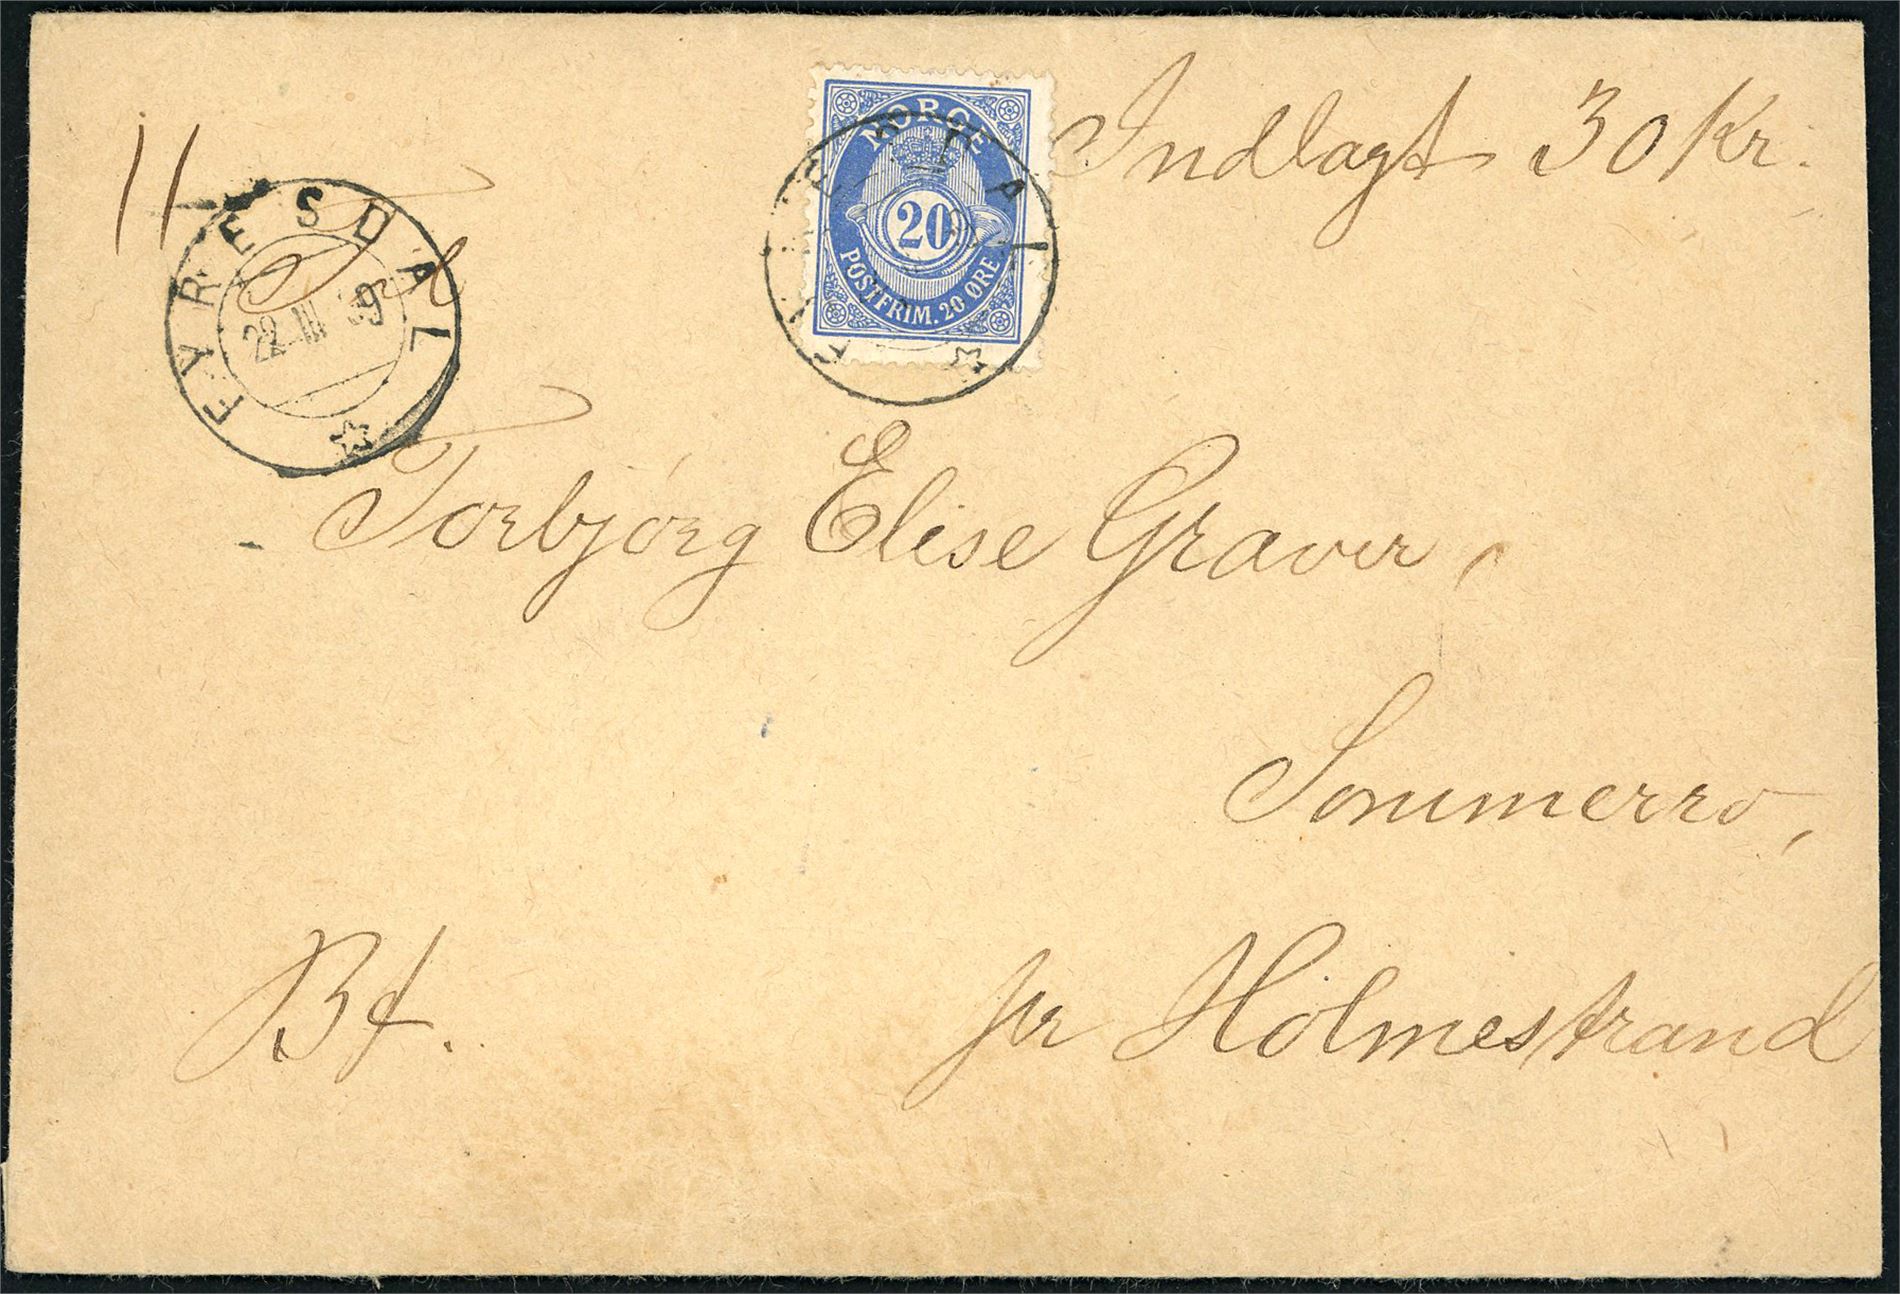 11
Indlagt 30 Kr.
NORGE
20
POSTFRIM. 20 ØRE
FYRESDAL
22 III 99
FYRESDAL
Torbjörg Elise Graver,
Sommerro,
Bf.
pr Holmestrand